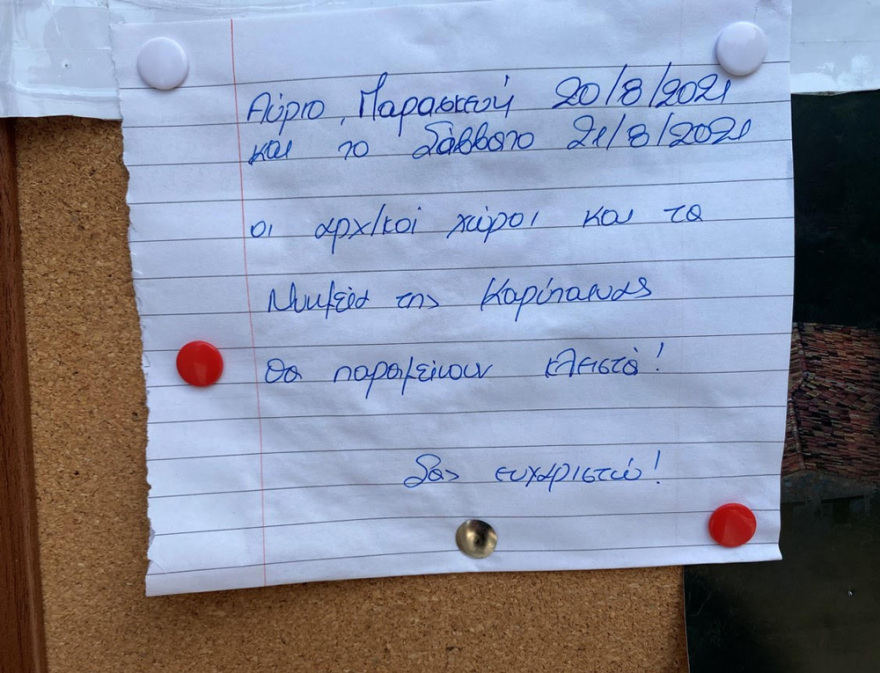 Αύριο, Παρασκευή 20/8/2021
και το Σάββατο 21/8/2021
οι αρχ/κοί χώροι και τα
Μνημεία της Καρύταινας
θα παραμείνουν κλειστά!
Σας ευχαριστώ!